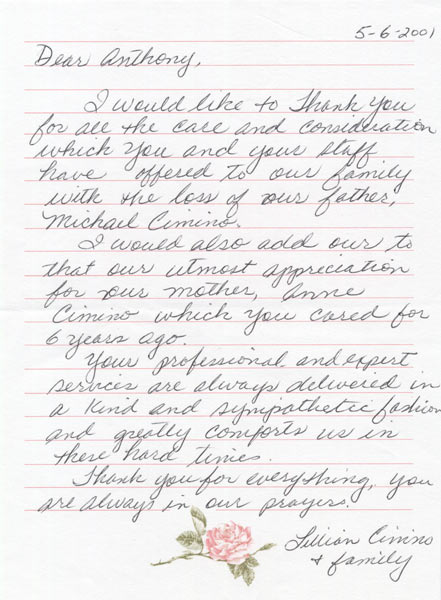 5-6-2001
Dear Anthony,
I would like to Thank you
for all the care and consideration
which you and your staff
have offered to our family
with the loss of our father,
Michael Cimino.
I would also add our to
that our utmost appreciation
for our mother, Anne
Cimino which you cared for
6 years ago.
Your professional and expert
services are always delivered in
a kind and sympathetic fashion
and greatly comforts us in
these hard times.
Thank you for everything, you
are always in our prayers.
Lillian Cimino
+ family